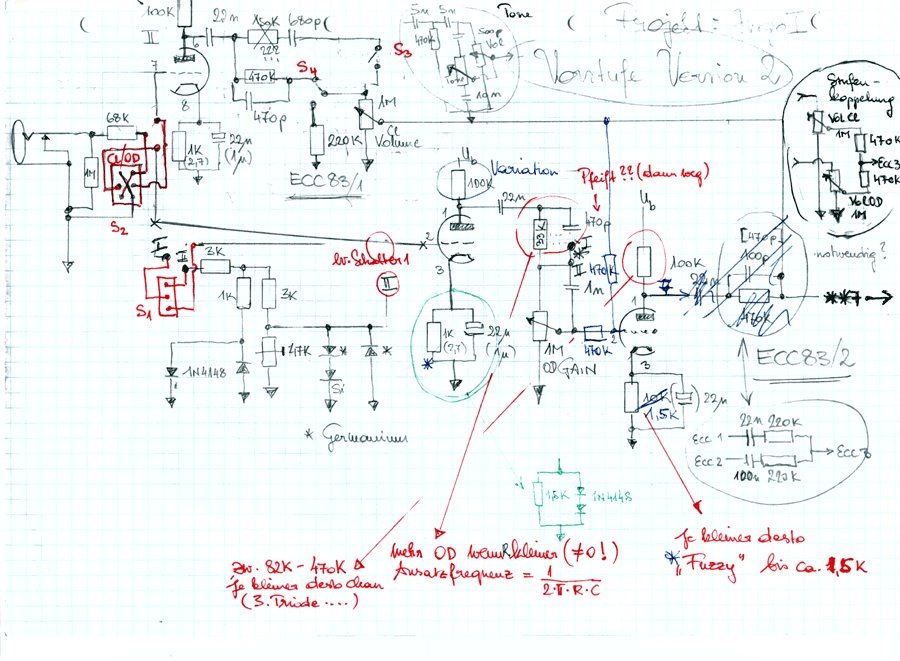 100K
II
22n
150K
???
680p
6
7
8
470K
470p
S4
S3
5n 5n
470K
Tone
500p
Vol
Tone
10n
( Projekt:
Vorstufe Version 2
68K
1M
CL/OD
S2
1K
(2,7)
22µ
(1µ)
220K
1M
CL
Volume
ECC83/1
Stufen-
koppelung
Vol CL
1M
470K
ECC3
470K
Vol OD
1M
notwendig?
Ub
100K
Variation
22n
1
2
3
Pfeift?? (dann weg)
33K
470p
I
II
1n
470K
470K
Ub
100K
22n
[470p]
100p
470K
**7
1M
OD GAIN
2
3
10K
1,5K
22µ
ECC83/2
Ecc 1
22n 220K
Ecc 2
100n 220K
Ecc 3
I
II
S1
3K
1K
3K
1N4148
47K
*
*
Si
bv. Schalter 1
II
1K
(2,7)
*
22µ
(1µ)
* Germanium
1,5K
1N4148
zw. 82K - 470K
je kleiner desto clean
(3. Triode ....)
mehr OD wenn R kleiner (≠0!)
Ansatzfrequenz = 1
2·π·R·C
je kleiner desto
* "Fuzzy" bis ca. 1,5K